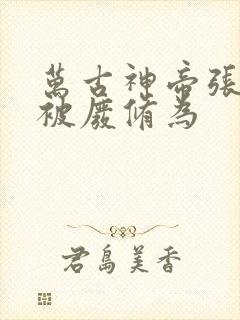 萬古神帝張
被廢脩為
君島美香